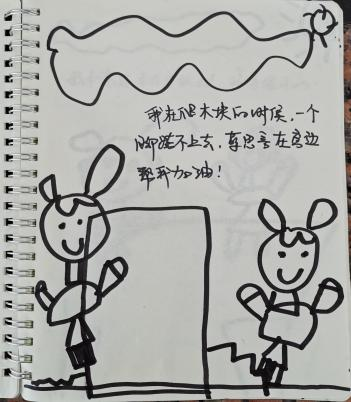 我在爬木块的时候,一个
脚踏不上去,辜思号在旁边
帮我加油!